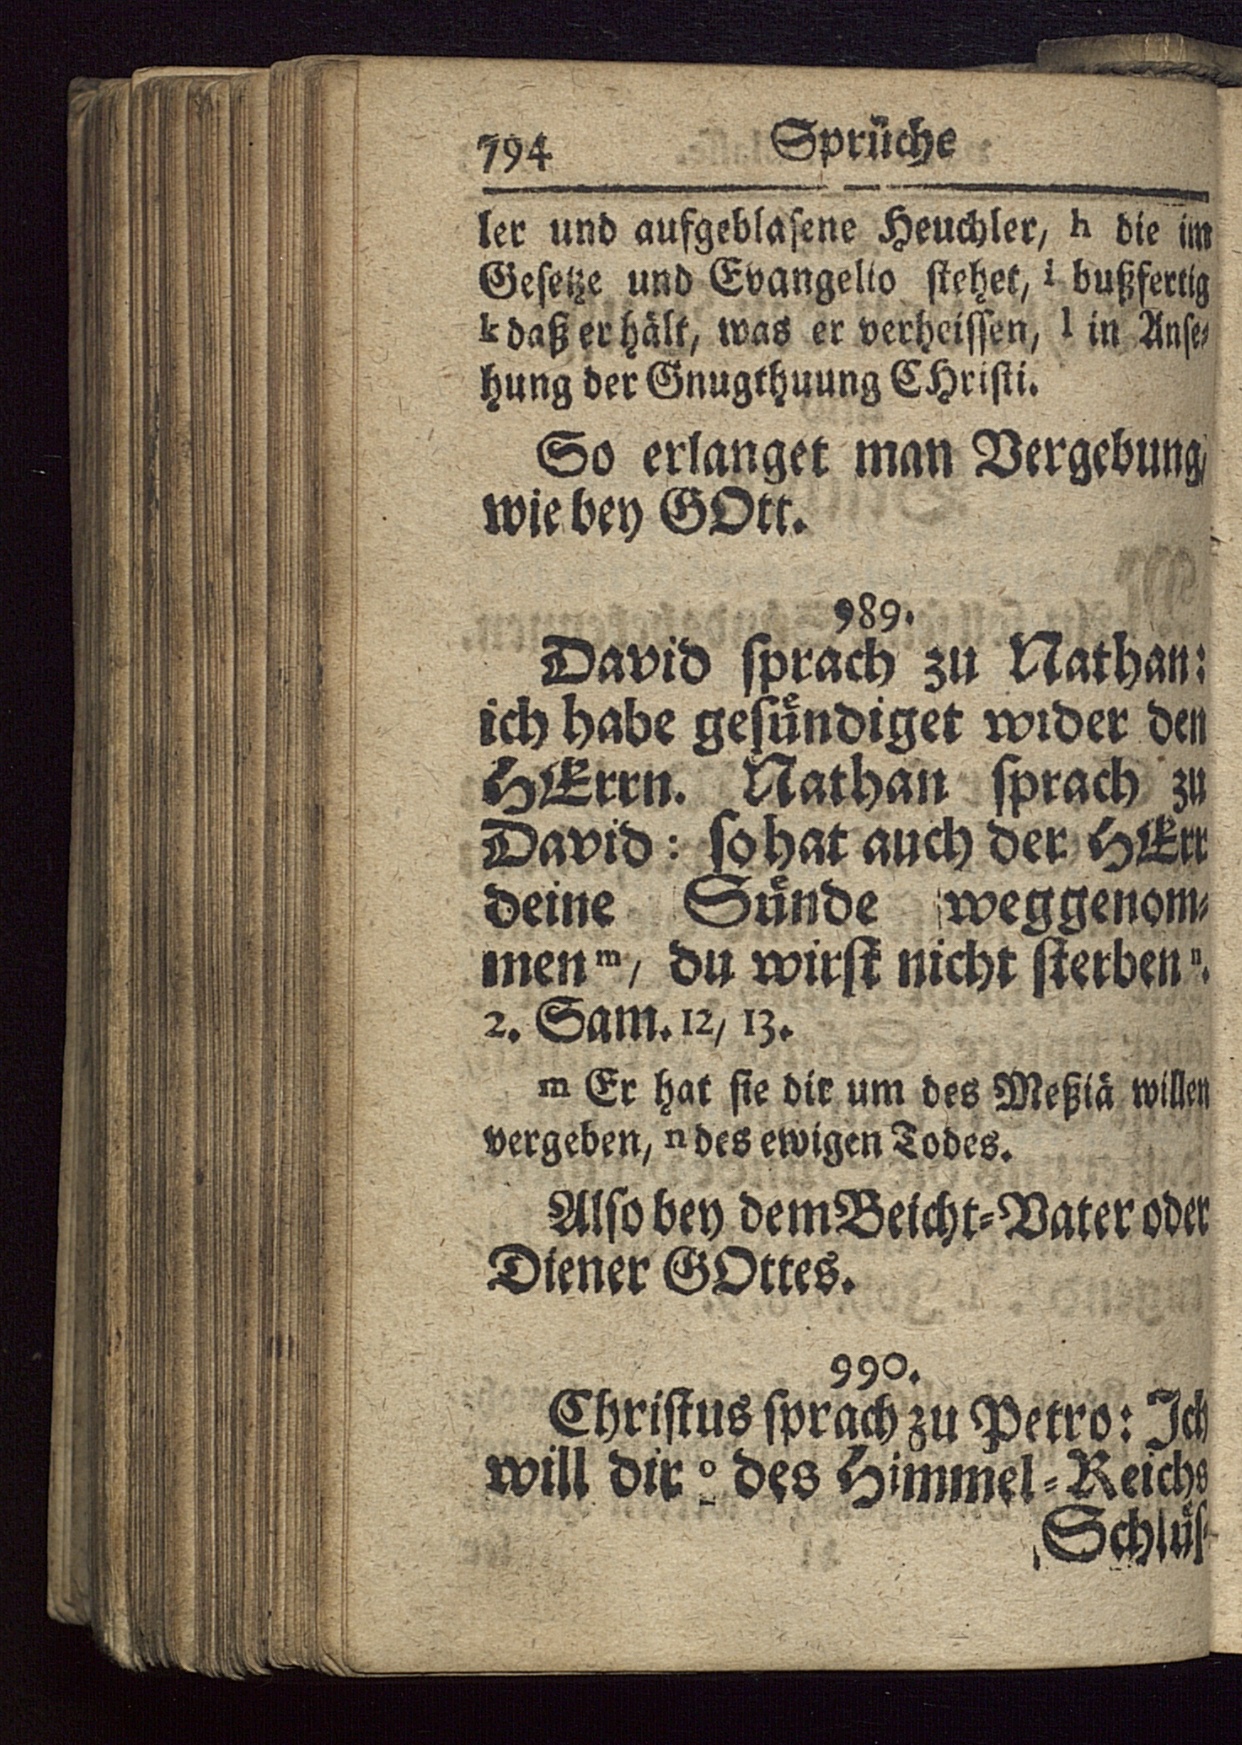 794 Sprüche
ler und aufgeblasene Heuchler, h die im
Gesetze und Evangelio stehet, i bußfertig
k daß er hält, was er verheissen, l in Anse-
hung der Gnugthuung CHristi.
So erlanget man Vergebung,
wie bey GOtt.
989.
David sprach zu Nathan:
ich habe gesündiget wider den
HErrn. Nathan sprach zu
David: so hat auch der HErr
deine Sünde weggenom-
men m, du wirst nicht sterben n.
2. Sam. 12, 13.
m Er hat sie dir um des Meßiä willen
vergeben, n des ewigen Todes.
Also bey dem Beicht-Vater oder
Diener GOttes.
990.
Christus sprach zu Petro: Ich
will dir o des Himmel-Reichs
Schlüs-